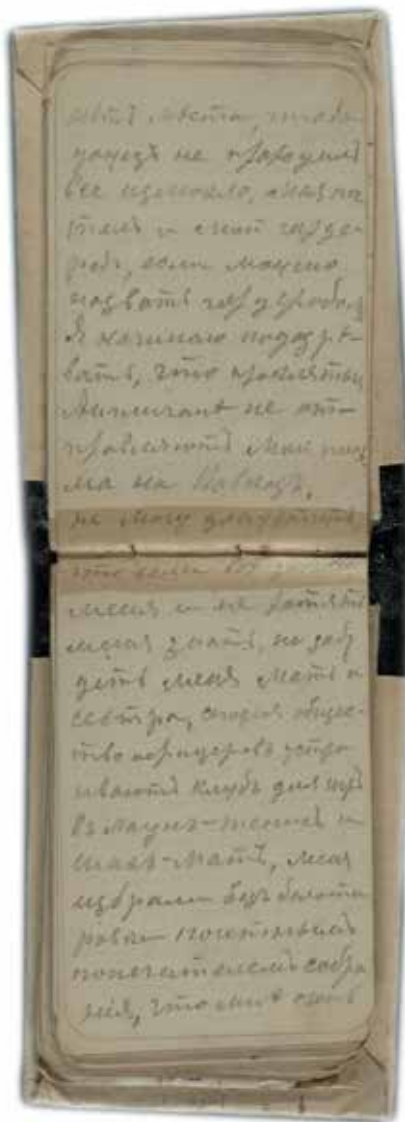 нѣтъ мѣста, чтобы
дождь не проходилъ
все измокло, мая по
стель и мой гарде
робъ, если можно
назвать гардеробомъ
Я начинаю подозрѣ-
вать, что проклятые
Англичане не от-
правляютъ мои пись
ма на Кавказъ,
не могу допустить
что если
меня и не хотятъ
меня знать, но забу
детъ меня мать и
сестра, сегодня общес-
тво офицеровъ устра
иваютъ клубъ для игръ
въ лаунъ-теннисъ и
шахъ-матъ, меня
избрали безъ баллоти
ровки почетнымъ
попечителемъ собра
нія, что мнѣ очень